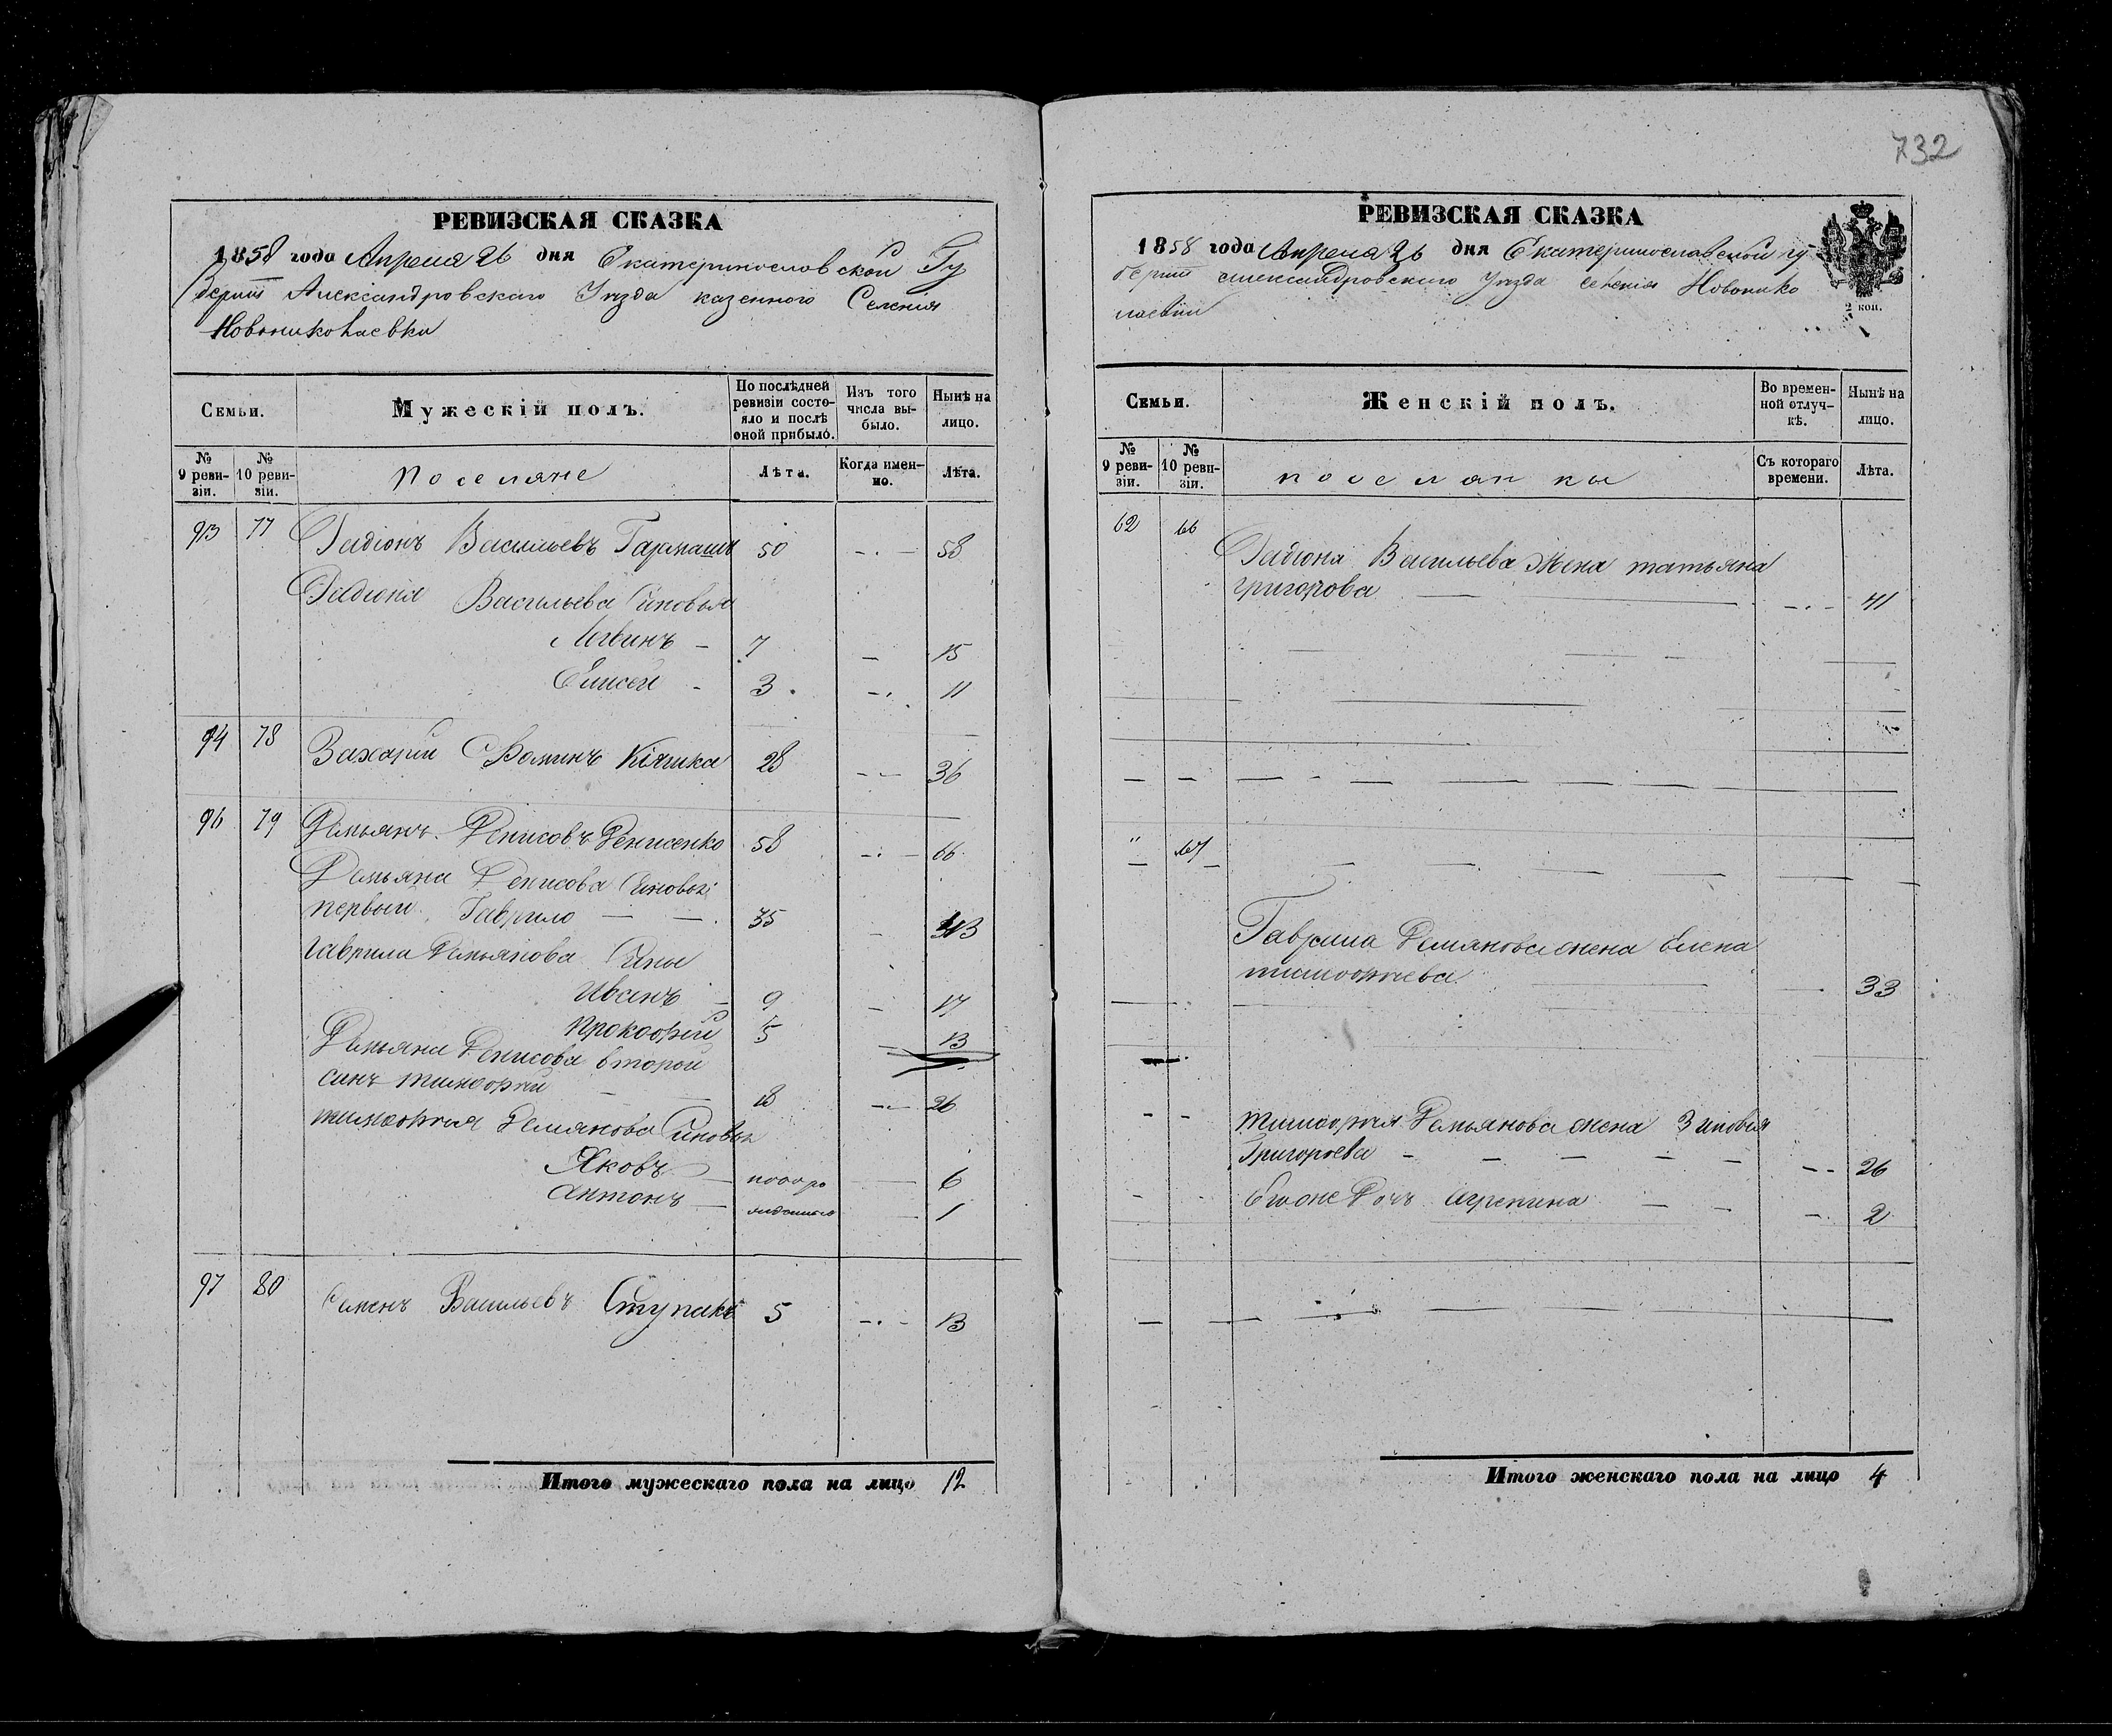 732
РЕВИЗСКАЯ СКАЗКА
1858 года Апреля 26 дня Екатеринославской Гу
берніи Александровскаго Уѣзда казенного Селенія
Новониколаевки
Семьи.
Мужескій полъ.
По послѣдней ревизіи состояло и послѣ оной прибыло.
Изъ того числа выбыло.
Нынѣ на лицо.
№ 9 ревизіи.
№ 10 ревизіи.
Поселяне
Лѣта.
Когда именно.
Лѣта.
93 77 Радіонъ Васильевъ Гармашъ 50 -.- 58
Радіона Васильева Синовья
Логвинъ - 7 - 15
Елисей - 3 -. 11
94 78 Захарій Фоминъ Кіяшка 28 -- 36
96 79 Демьянъ Денисовъ Денисенко 58 -.- 66
Демьяна Денисова Синовья:
первый Гаврило — — 35 - 43
Гаврила Демьянова Сины
Иванъ - 9 - 17
Прокофій 5 - 13
Демьяна Денисова второй
синъ Тимофій — — 18 -- 26
Тимофія Демянова Синовья
Яковъ — после р 6
Антонъ — 1
97 80 Семенъ Васильевъ Ступакъ 5 -.- 13
Итого мужескаго пола на лицо 12
РЕВИЗСКАЯ СКАЗКА
1858 года Апреля 26 дня Екатеринославской гу
берніи Александровскаго Уѣзда Селенія Новонико
лаевки
2 коп.
Семьи.
Женскій полъ.
Во временной отлучкѣ.
Нынѣ на лицо.
№ 9 ревизіи.
№ 10 ревизіи.
поселянки
Съ котораго времени.
Лѣта.
62 66
Радіона Васильева Жена татьяна
григорова — -.- 41
" 67
Гаврила Демянова жена Елена
тимофиева — 33
Тимофія Демьянова жена Зиновія
Григорьева - - - - - -- 26
Его же Дочь Агрепина - - - 2
Итого женскаго пола на лицо 4